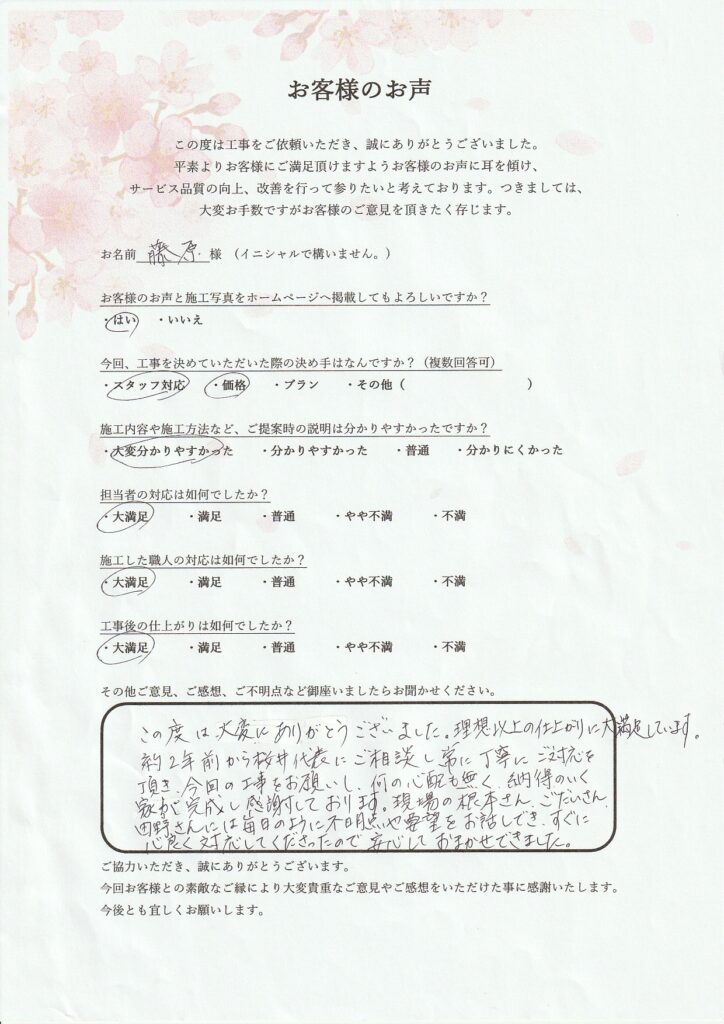 お客様のお声
この度は工事をご依頼いただき、誠にありがとうございました。
平素よりお客様にご満足頂けますようお客様のお声に耳を傾け、
サービス品質の向上、改善を行って参りたいと考えております。つきましては、
大変お手数ですがお客様のご意見を頂きたく存じます。
お名前 藤原 様 （イニシャルで構いません。）
お客様のお声と施工写真をホームページへ掲載してもよろしいですか？
・はい ・いいえ
今回、工事を決めていただいた際の決め手はなんですか？（複数回答可）
・スタッフ対応 ・価格 ・プラン ・その他（ ）
施工内容や施工方法など、ご提案時の説明は分かりやすかったですか？
・大変分かりやすかった ・分かりやすかった ・普通 ・分かりにくかった
担当者の対応は如何でしたか？
・大満足 ・満足 ・普通 ・やや不満 ・不満
施工した職人の対応は如何でしたか？
・大満足 ・満足 ・普通 ・やや不満 ・不満
工事後の仕上がりは如何でしたか？
・大満足 ・満足 ・普通 ・やや不満 ・不満
その他ご意見、ご感想、ご不明点など御座いましたらお聞かせください。
この度は大変にありがとうございました。理想以上の仕上がりに大満足しています。
約2年前から桜井代表にご相談し常に丁寧にご対応を
頂き、今回の工事をお願いし、何の心配も無く、納得のいく
家が完成し感謝しております。現場の根本さん、ごだいさん、
田野さんには毎日のように不明点や要望をお話しでき、すぐに
心良く対応してくださったので安心しておまかせできました。
ご協力いただき、誠にありがとうございます。
今回お客様との素敵なご縁により大変貴重なご意見やご感想をいただけた事に感謝いたします。
今後とも宜しくお願いします。